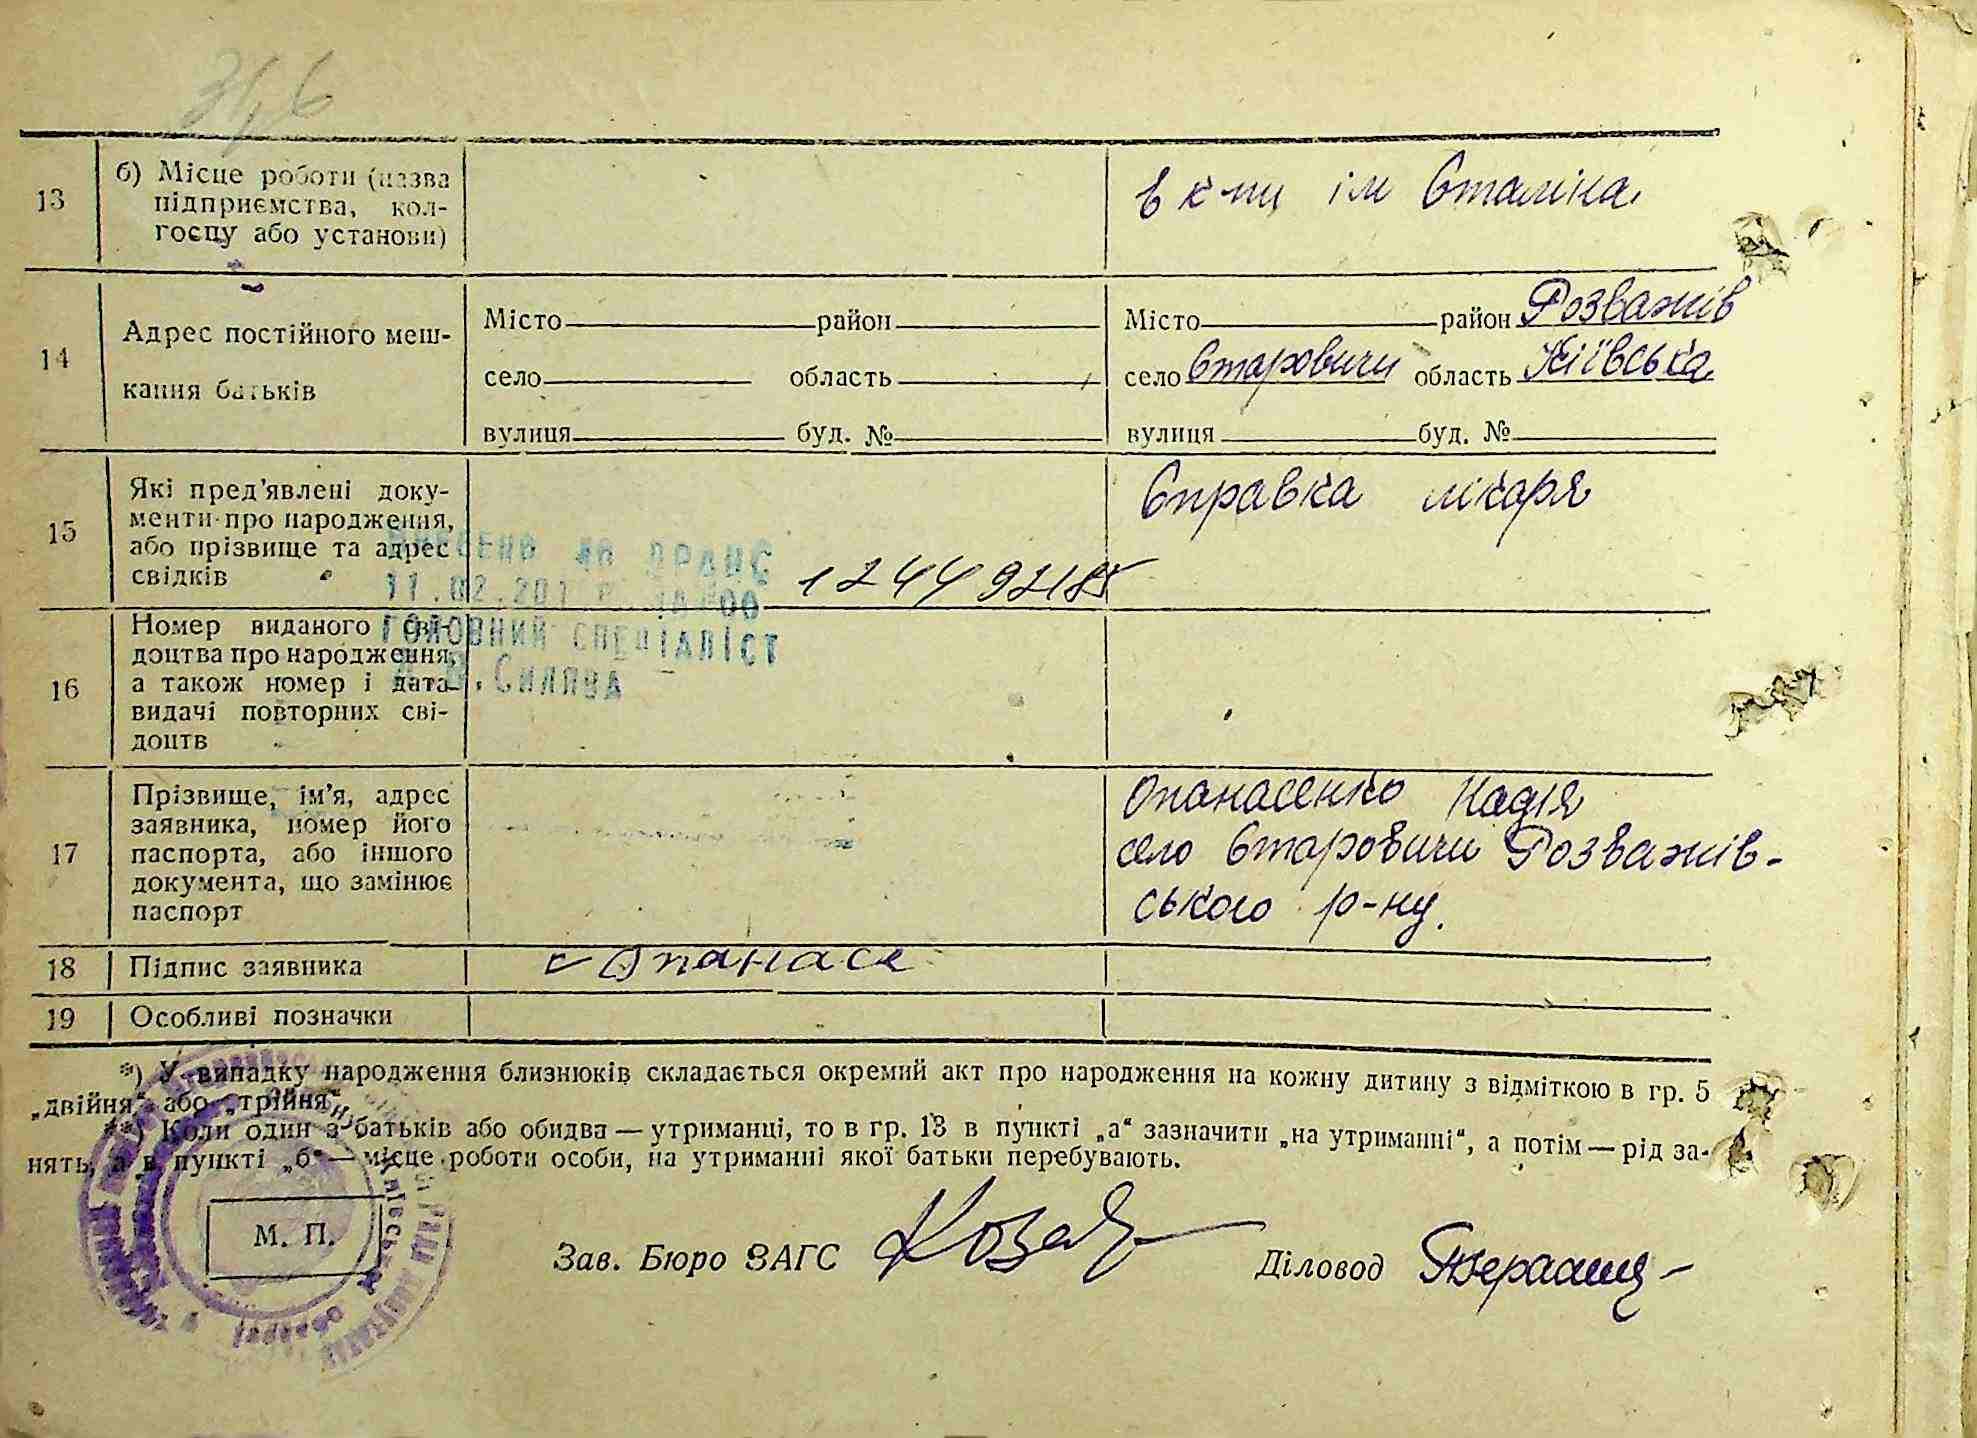 346
13
б) Місце роботи (назва
підприємства, кол-
госпу або установи)
в к-пі ім Сталіна
14
Адрес постійного меш-
кання батьків
Місто район
село область
вулиця буд. №
Місто район Розважів
село Старовичи область Київська
вулиця буд. №
15
Які пред'явлені доку-
менти про народження,
або прізвище та адрес
свідків
Справка лікаря
124492185
Внесено до ДРАЦС
11.02.201
Головний спеціаліст
16
Номер виданого сві-
доцтва про народження,
а також номер і дата
видачі повторних сві-
доцтв
17
Прізвище, ім'я, адрес
заявника, номер його
паспорта, або іншого
документа, що замінює
паспорт
Опанасенко Надія
село Старовичи Розважів-
ського р-ну.
18
Підпис заявника
Опанасе
19
Особливі позначки
*) У випадку народження близнюків складається окремий акт про народження на кожну дитину з відміткою в гр. 5
„двійня“ або „трійня“
**) Коли один з батьків або обидва — утриманці, то в гр. 13 в пункті „а“ зазначити „на утриманні“, а потім — рід за-
нять, а в пункті „б“ — місце роботи особи, на утриманні якої батьки перебувають.
М. П.
Зав. Бюро ЗАГС
Діловод